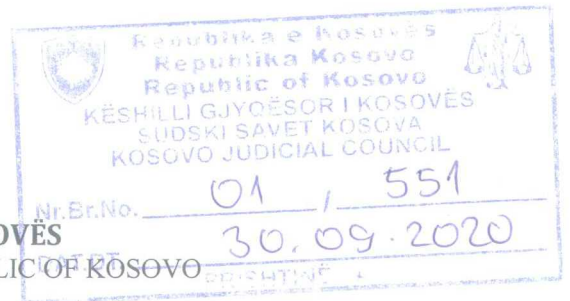 Republika e Kosovës
Republika Kosovo
Republic of Kosovo
KËSHILLI GJYQËSOR I KOSOVËS
SUDSKI SAVET KOSOVA
KOSOVO JUDICIAL COUNCIL
Nr.Br.No. 01 / 551
OVËS
30.09.2020
LIC OF KOSOVO
PRISHTINË